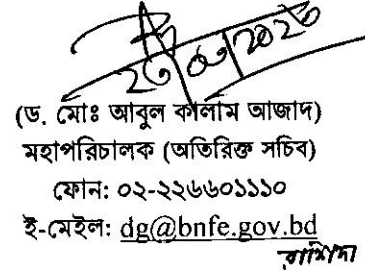 (ড. মোঃ আবুল কালাম আজাদ)
মহাপরিচালক (অতিরিক্ত সচিব)
ফোন: ০২-২২৬৬০১১১০
ই-মেইল: dg@bnfe.gov.bd
রাশিদা